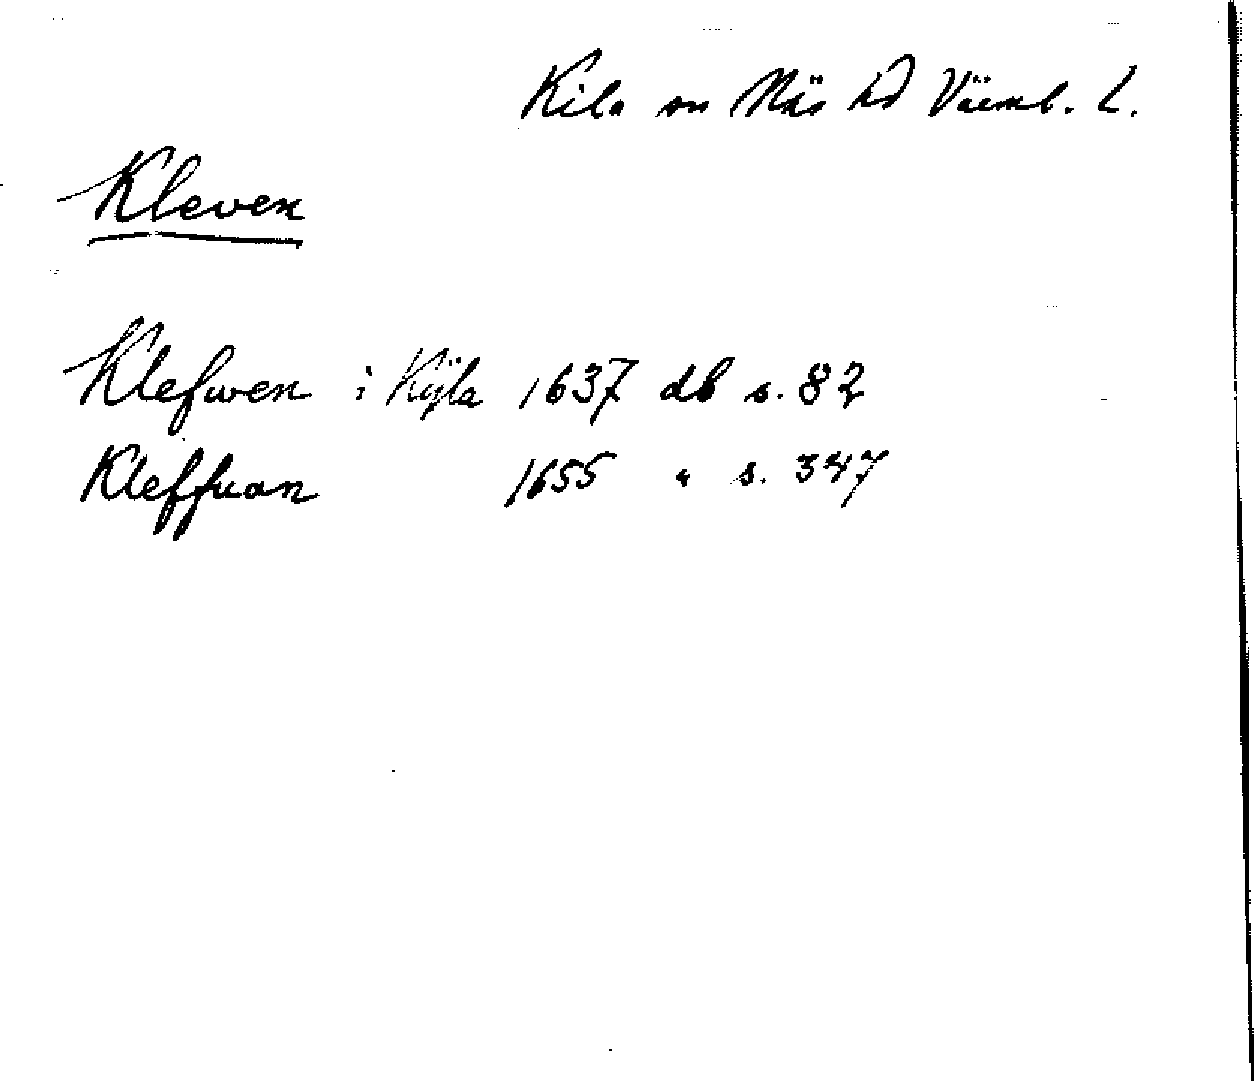 Kila sn Näs hd Värml. L.
Kleven
Klefwen i Kÿla 1637 db s. 82
Kleffuan 1655 " s. 347